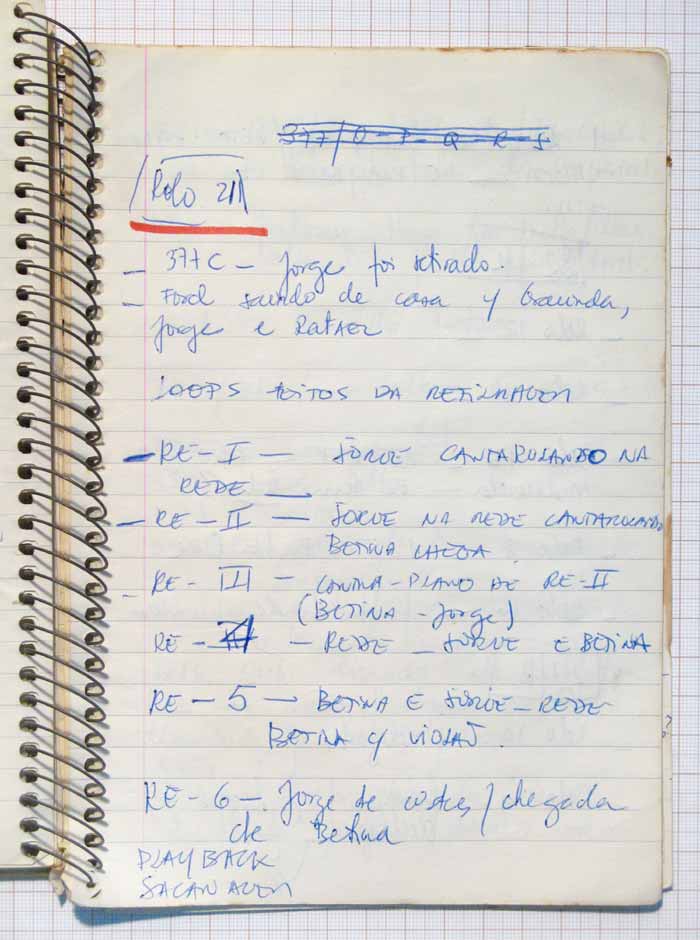 377/O-P-Q-R-S
Rolo 211
- 377C - Jorge foi retirado.
- Ford saindo de casa c/ Graúnda,
Jorge e Rafael
LOOPS FEITOS DA REFILMAGEM
- RE-I - JORGE CANTAROLANDO NA
REDE
- RE-II - JORGE NA REDE CANTAROLANDO
BETINA CHEGA
- RE-III - CONTRA-PLANO DE RE-II
(BETINA-Jorge)
RE- - REDE - JORGE E BETINA
RE-5 - BETINA E JORGE-REDE
BETINA C/ VIOLÃO.
RE-6-. Jorge de costas/chegada
de Betina
PLAYBACK
SACANAGEM